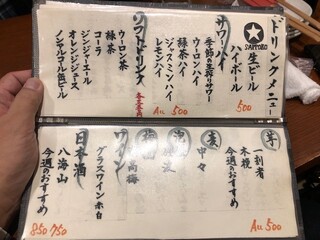 ドリンクメニュー
SAPPORO
生ビール
ハイボール
500
サワー・ハイ
季節の生搾りサワー
ウーロンハイ
緑茶ハイ
ジャスミンハイ
レモンハイ
Au 500
ソフトドリンク
ウーロン茶
緑茶
コーラ
ジンジャーエール
オレンジジュース
ノンアルコール缶ビール
芋
一刻者
木挽
今週のおすすめ
Au 500
麦
中々
ワイン
グラスワイン赤白
日本酒
八海山
今週のおすすめ
850 750